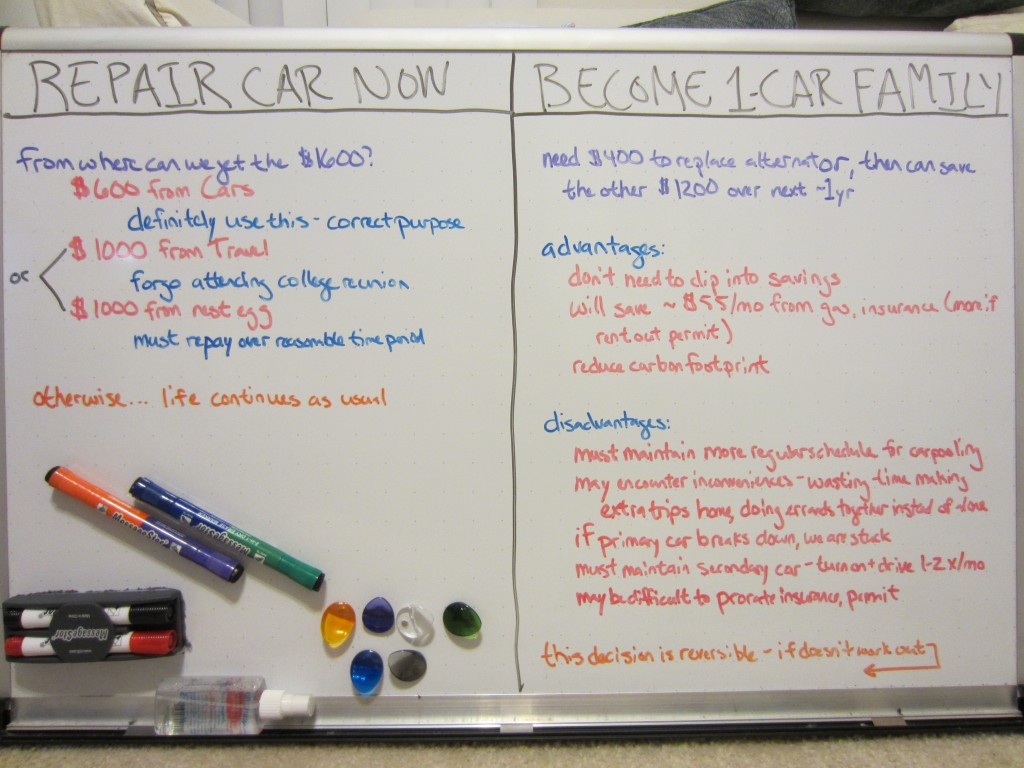 REPAIR CAR NOW
from where can we get the $1600?
$600 from Cars
definitely use this - correct purpose
or
$1000 from Travel
forgo attending college reunion
$1000 from nest egg
must repay over reasonable time period
otherwise... life continues as usual
BECOME 1-CAR FAMILY
need $400 to replace alternator, then can save
the other $1200 over next ~1yr
advantages:
don't need to dip into savings
will save ~$55/mo from gas, insurance (more if
rent out permit)
reduce carbon footprint
disadvantages:
must maintain more regular schedule for carpooling
may encounter inconveniences - wasting time making
extra trips home, doing errands together instead of alone
if primary car breaks down, we are stuck
must maintain secondary car - turn on + drive 1-2x/mo
may be difficult to prorate insurance, permit
this decision is reversible - if doesn't work out
MessageStor